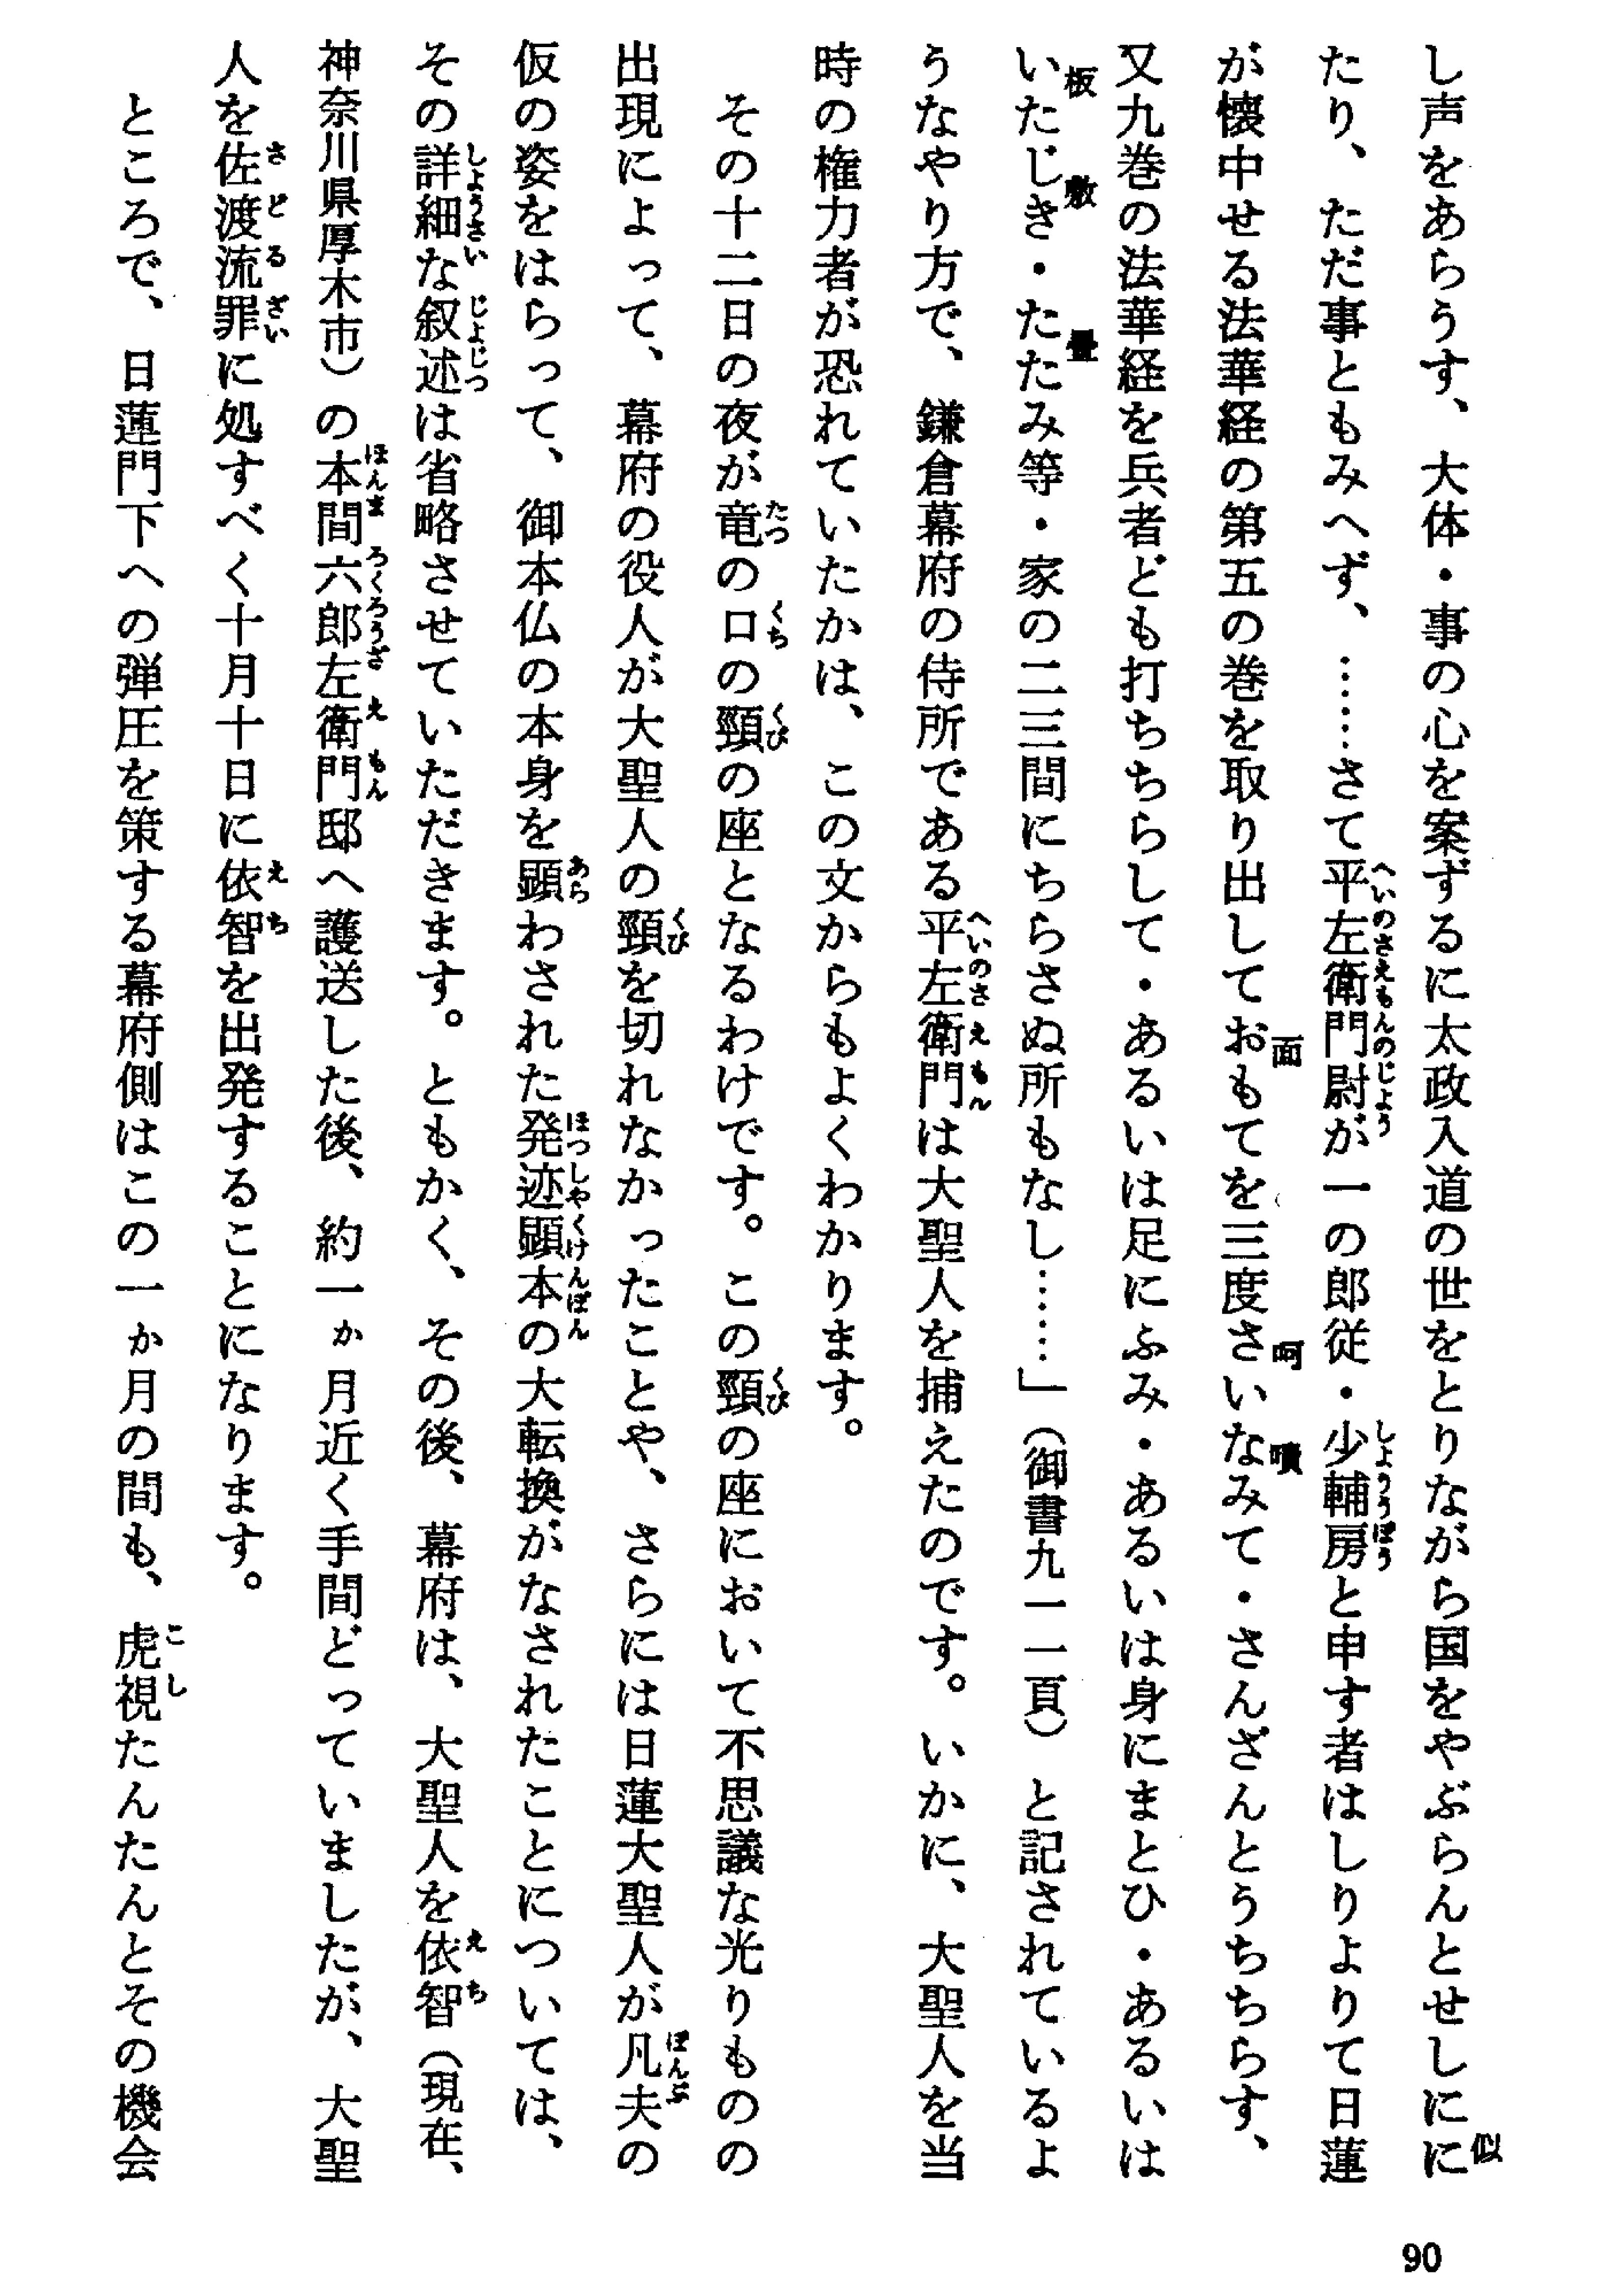 し声をあらうす、大体・事の心を案ずるに太政入道の世をとりながら国をやぶらんとせしにに
たり、ただ事ともみへず、……さて平左衛門尉が一の郎従・少輔房と申す者はしりよりて日蓮
が懐中せる法華経の第五の巻を取り出しておもてを三度さいなみて・さんざんとうちちらす、
又九巻の法華経を兵者ども打ちちらして・あるいは足にふみ・あるいは身にまとひ・あるいは
いたじき・たたみ等・家の二三間にちらさぬ所もなし……」（御書九一一頁）と記されているよ
うなやり方で、鎌倉幕府の侍所である平左衛門は大聖人を捕えたのです。いかに、大聖人を当
時の権力者が恐れていたかは、この文からもよくわかります。
その十二日の夜が竜の口の頸の座となるわけです。この頸の座において不思議な光りものの
出現によって、幕府の役人が大聖人の頸を切れなかったことや、さらには日蓮大聖人が凡夫の
仮の姿をはらって、御本仏の本身を顕わされた発迹顕本の大転換がなされたことについては、
その詳細な叙述は省略させていただきます。ともかく、その後、幕府は、大聖人を依智（現在、
神奈川県厚木市）の本間六郎左衛門邸へ護送した後、約一か月近く手間どっていましたが、大聖
人を佐渡流罪に処すべく十月十日に依智を出発することになります。
ところで、日蓮門下への弾圧を策する幕府側はこの一か月の間も、虎視たんたんとその機会
90